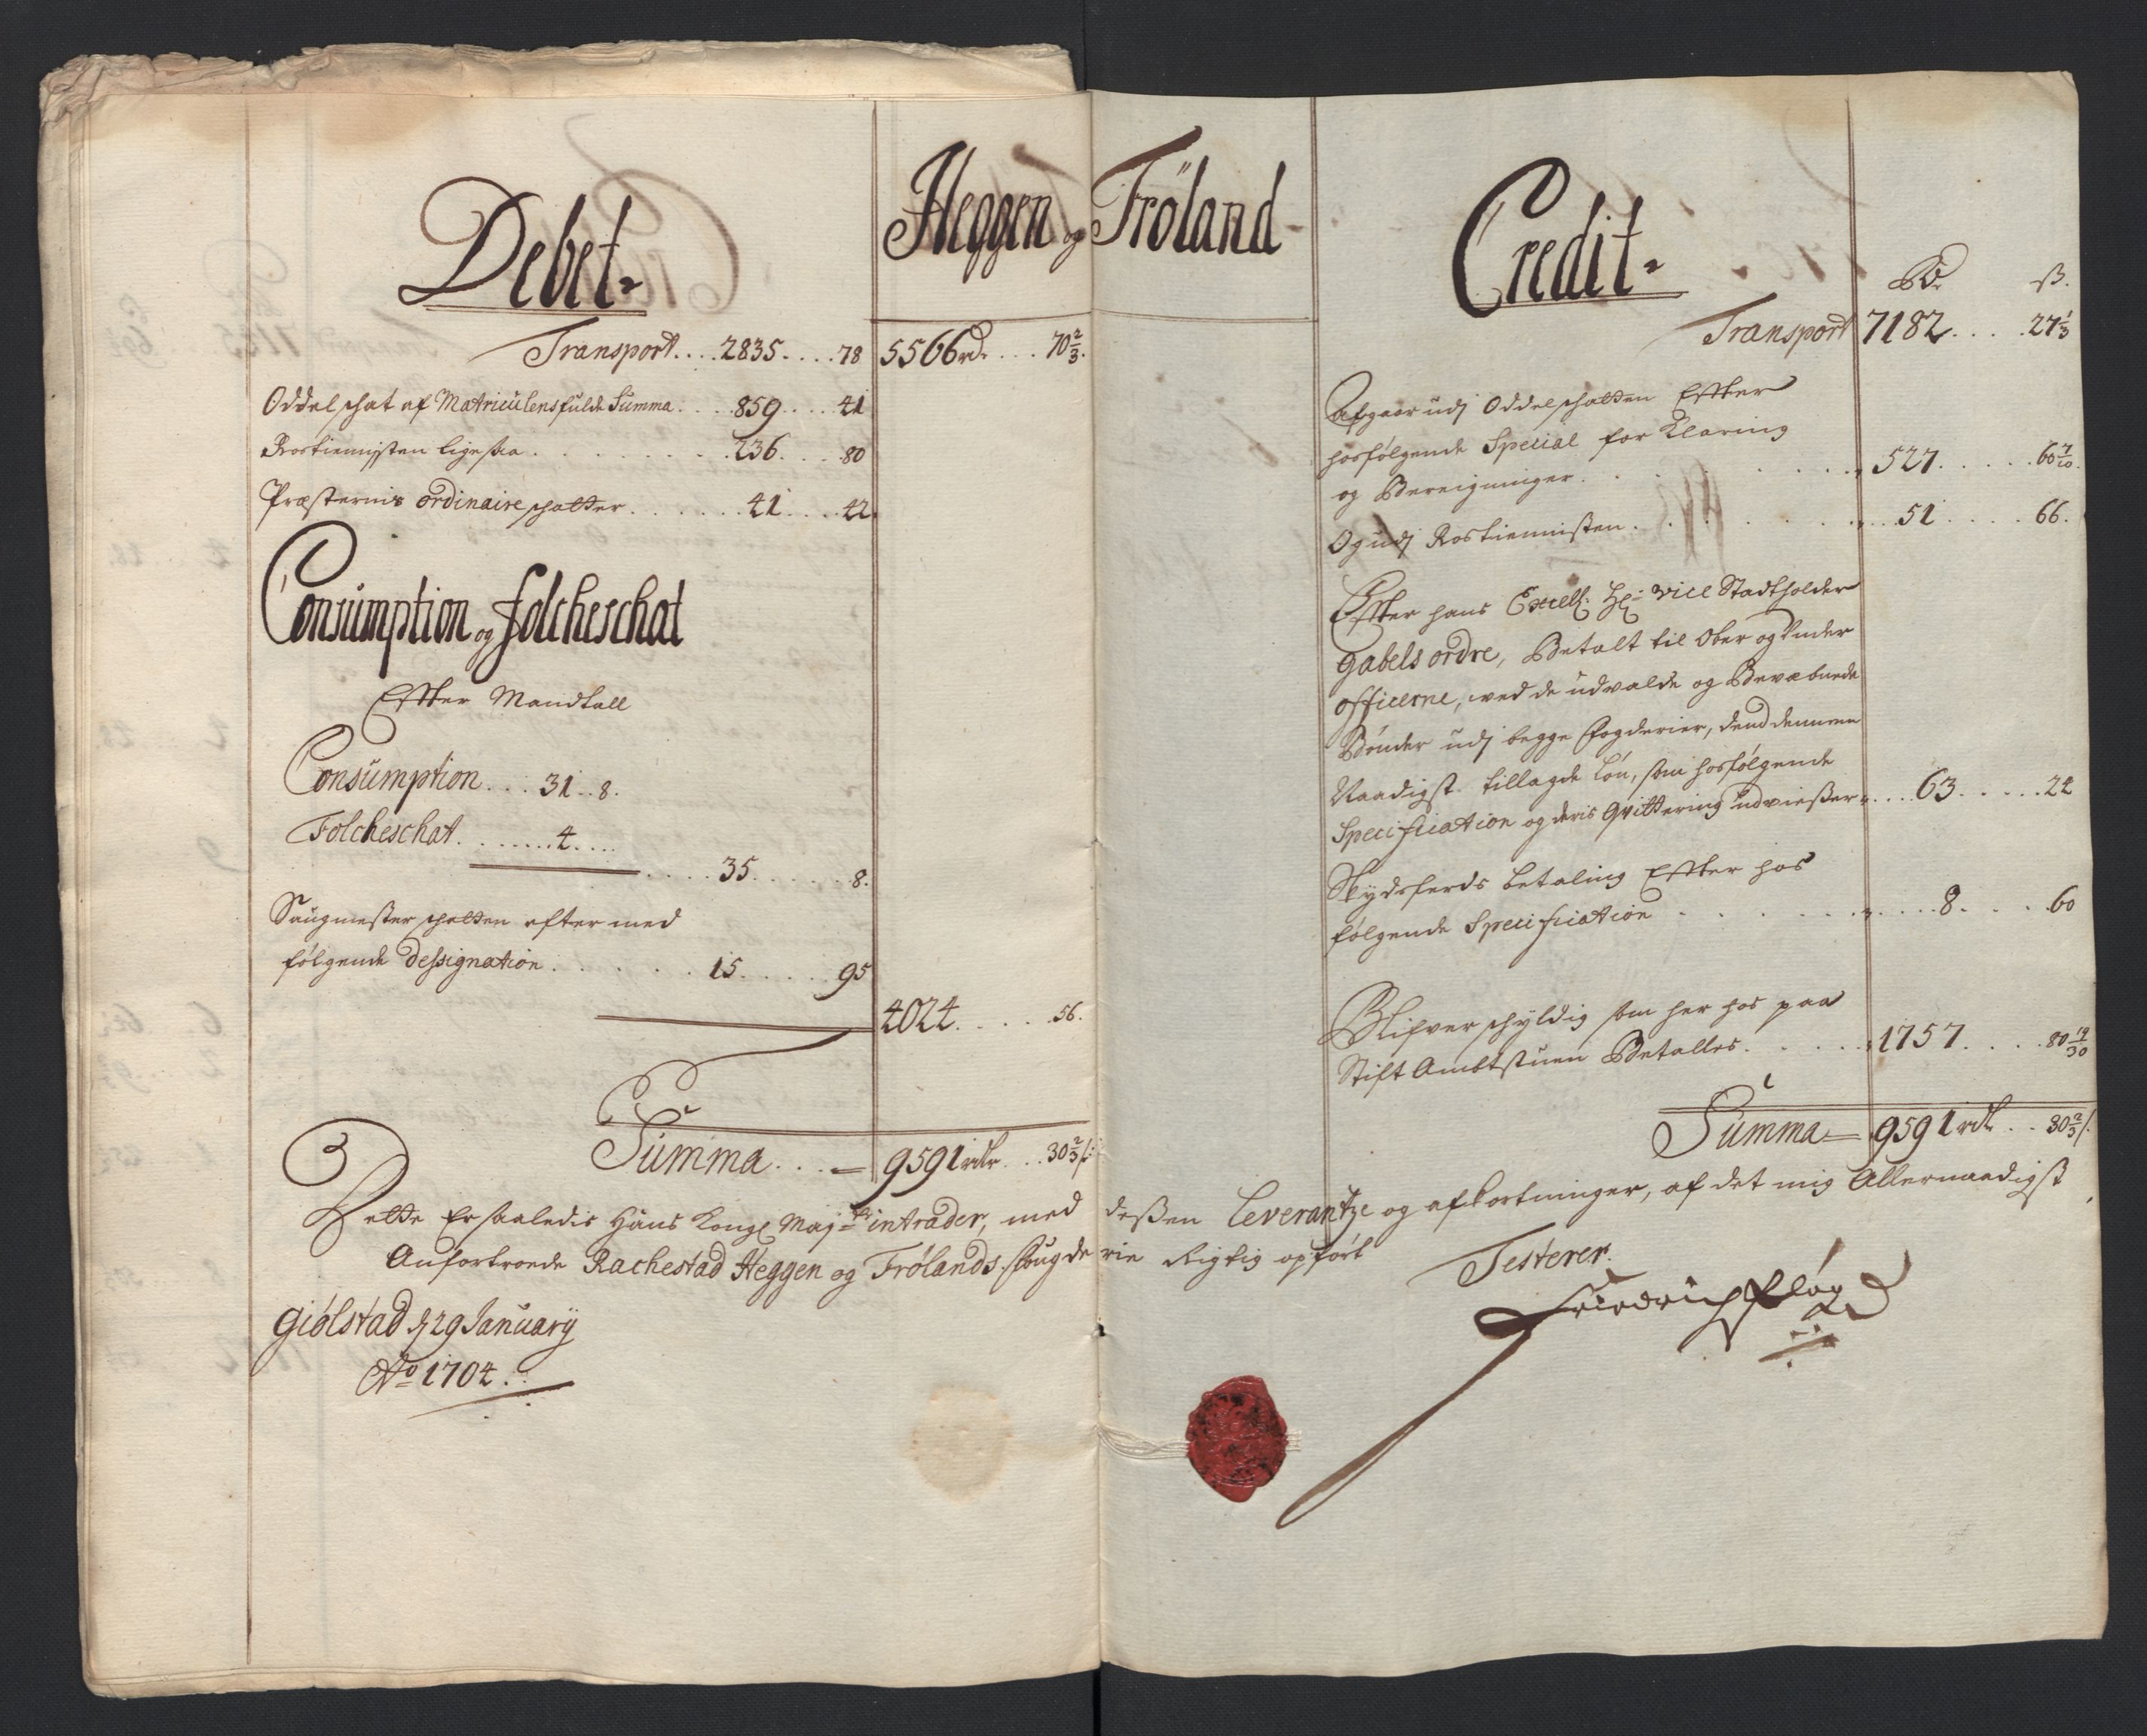 Debet
Heggen og Fröland
Transport....2835....78 5566 rd....70 2/3.
Oddelschat af Matriculens fulde Summa....859....41
Rostienisten ligesaa........236....80
Præsternis ordinaire schatter.......41....42.
Consumption og folcheschat
Effter Mandtall
Consumption....31..8.
Folcheschat........4....
....35......8.
Saugmester schatten efter med
følgende Dessignation......15......95
4024.....56.
Summa....9591 rdlr...30 2/3 ß
Credit
Rdr ß.
Transport 7182....27 1/3
Afgaar udj Oddelschatten Effter
hosfølgende Special for Klaring
og Bereigninger........527.....60 7/10.
Og udj Rostiennisten........51....66.
Effter hans Excell: Hr: Vice Stadtholder
Gabels ordre, Betalt til Ober og Under
officerne, ved de udvalde og Bevæbnede
Bønder udj begge fogderier, dend dennem
Naadigst. tillagde Løn, som hosfølgende
Specification og deris Qvittering udvießer....63.....22
Skydsferds betaling Effter hos
følgende Specification........8....60
Blifver schyldig som her hos paa
Stift Ambtstuen Betalles......1757....80 19/30
Summa 9591 rdl..30 2/3 ß.
Dette Er saaledis Hans Kongl Maj:ts intrader, med deßen Leverantze og afkortninger, af det mig Allernaadigst
Anfortroede Rachestad Heggen og Frølands fougderie Rigtig opført
Testerer.
Giölstad d 29 January
Ao 1704.
Friedrich Pfløg